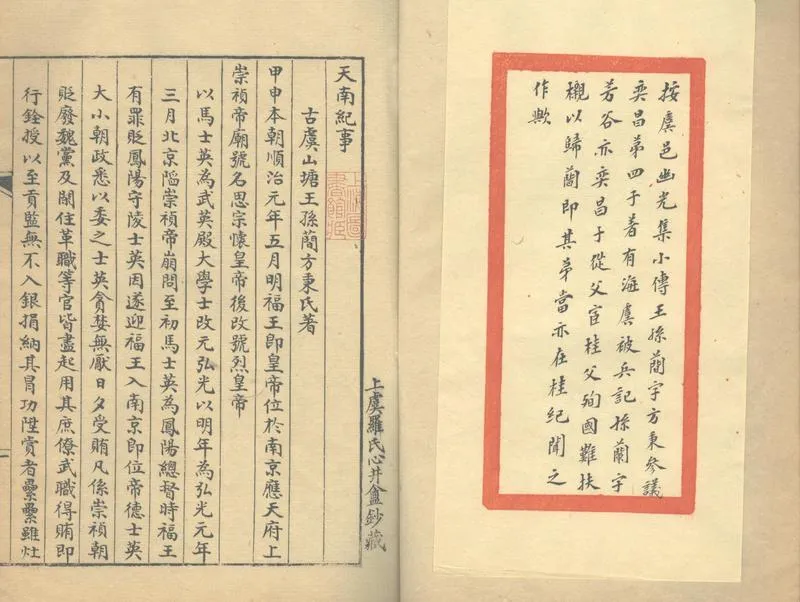 按虞邑幽光集小傳王孫蕳字方秉參議
奕昌第四子著有海虞被兵記孫蘭字
芳谷亦奕昌子從父宦桂父殉國難扶
櫬以歸蕳即其弟當亦在桂紀聞之
作歟
上虞羅氏心井盦鈔藏
天南紀事
上海圖
書館藏
古虞山塘王孫蕳方秉氏著
甲申本朝順治元年五月明福王即皇帝位於南京應天府上
崇禎帝廟號名思宗懷皇帝後改號烈皇帝
以馬士英為武英殿大學士改元弘光以明年為弘光元年
三月北京陷崇禎帝崩問至初馬士英為鳳陽總督時福王
有罪貶鳳陽守陵士英因遂迎福王入南京即位帝德士英
大小朝政悉以委之士英貪婪無厭日夕受賄凡係崇禎朝
貶廢魏黨及閒住革職等官皆盡起用其庶僚武職得賄即
行銓授以至貢監無不入銀捐納其冐功陞賞者纍纍雖灶